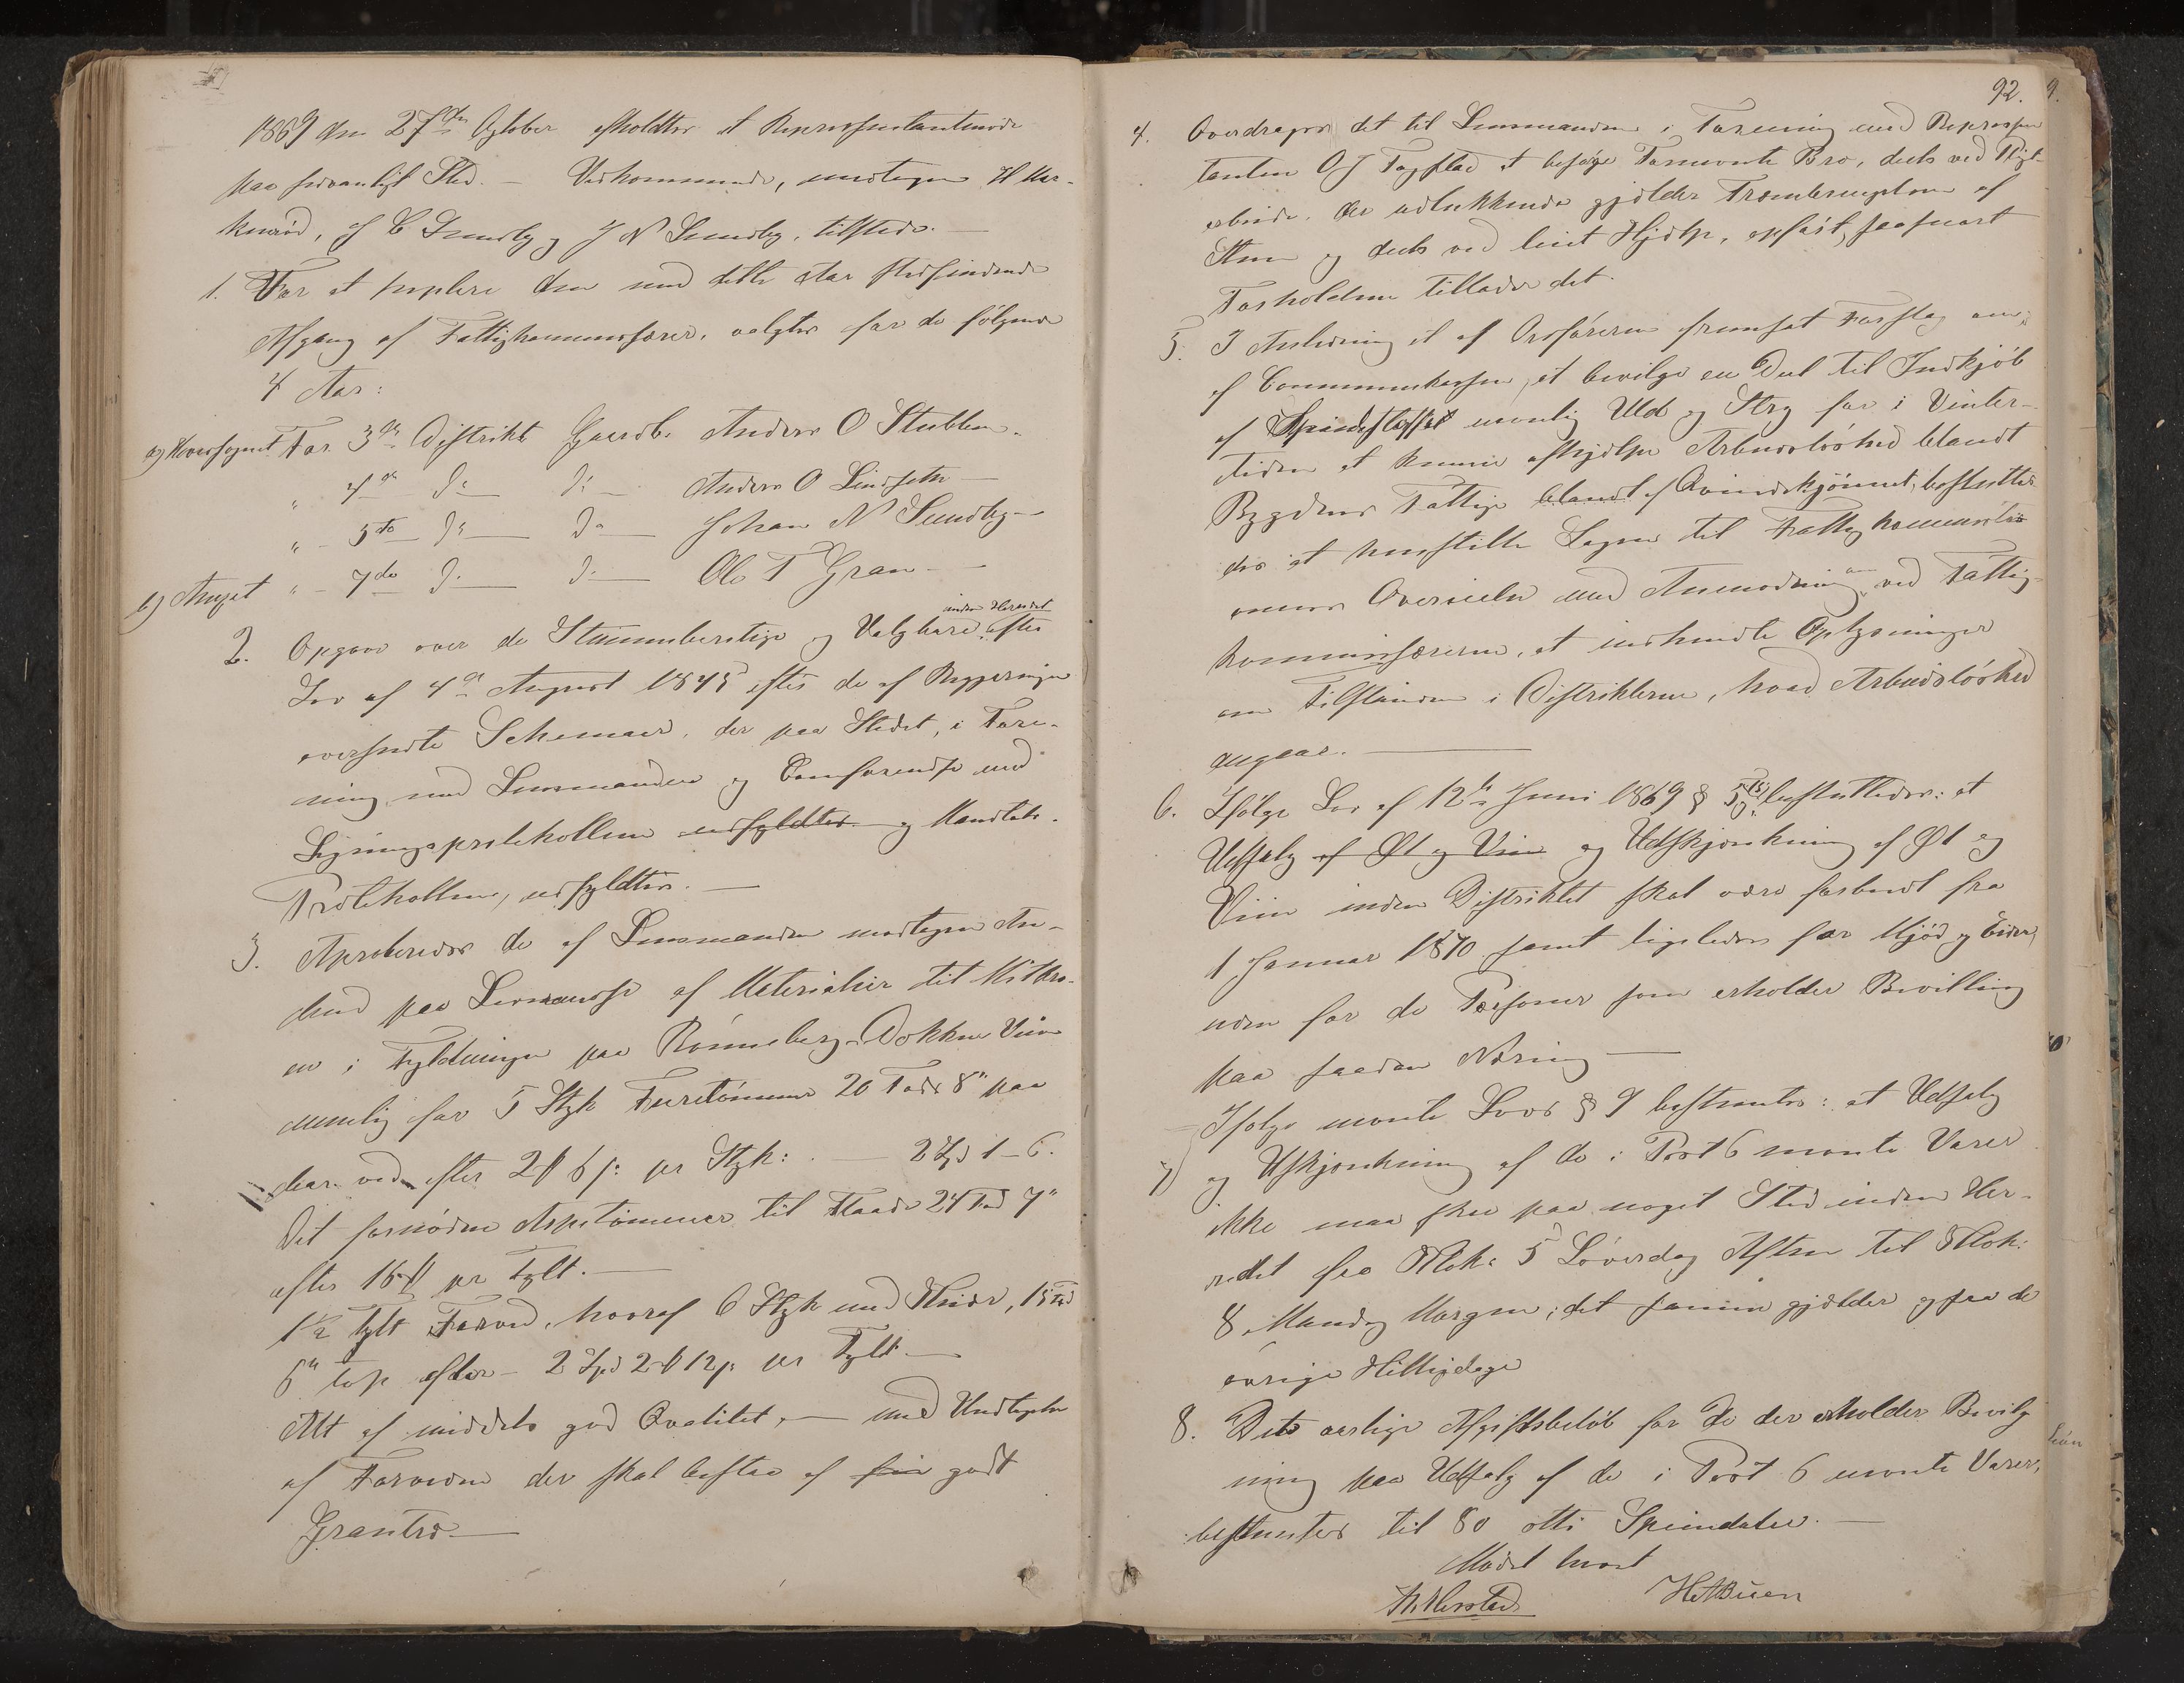 1869 den 27de Oktober afholdtes et Repræsentantmøde
paa sædvanligt Sted. – Vedkommende, undtagen H Kar-
knerød, C Sundby og J N Sundby, tilstede. –
1. For at supplere den med dette Aar stedfindende
Afgang af Fattigkommissærer, valgtes for de følgende
4 Aar:
a) Hovedsognet For 3de Distrikt Gaardb. Anders O Stubben.
" 4de Do – Do – Anders O Lindseth –
" – 5te Do – Do – Johan N Sundby –
b) Annexet " – 7de Do – Do – Ole T Gran –
2. Opgave over de Stemmeberettige og Valgbare inden Heredet efter
Lov af 4de August 1845 efter de af Regjeringen
oversendte Schemaer, der paa Stedet, i Fore-
ning med Lensmanden og Conference med
Ligningsprotokollen udfyldtes og Mandtals-
Protokollen, udfyldtes. –
3. Aproberedes de af Lensmanden modtagne An-
bud paa Leverandse af Materialier til
en i Fyldningen paa Rønneberg-Dokken Veien
nemlig for 5 Styk Furetømmer 20 Fods 8" paa
efter 2 ℔ 6 s: pr Styk: . – 2 Spd 1 – 6.
Det fornødne Aspetømmer til Flaade 24 Fod 7"
efter 16 ℔ pr Tylt. –
1½ Tylt Farved, hvoraf 6 Styk med Knier, 15 Fod
6" top efter – 2 Spd 2 ℔ 12 s: pr Tylt –
Alt af middels god Qvalitet, – med Undtagelse
af Farveden der skal bestaa af fin godt
Grantræ –
92.
4. Overdrages det til Lensmanden i Forening med Repræsen
tanten O J Fagstad at besørge Formente Bro, deels ved Pligt-
arbeide, der udelukkende gjelder Frembringelsen af
Steen og deels ved leiet Hjelp, opført, saasnart
Forholdene tillader det.
5. I Anledning et af Ordføreren fremsat Forslag om,
af Communekassen, at bevilge en Deel til Indkjøb
af Spindestoffer nemlig Uld og Stry for i Vinter-
tiden at kunne afhjelpe Arbeidsløshed blandt
Bygdens Fattige blandt af Qvindekjønnet, beslutte-
des at henstille Sagen til Fattigkommissio
nernes Overveielse med Anmodning om ved Fattig-
kommissærerne, at indhente Oplysninger
om Tilstanden i Distrikterne, hvad Arbeidsløshed
angaar. –
6. Ifølge Lov af 12te Juni 1869 § 5 besluttedes: at
Udsalg af Øl og Viin og Udskjænkning af Øl og
Viin inden Distriktet skal være forbudt fra
1 Januar 1870 samt ligeledes for Mjød og Cider,
uden for de Personer som erholder Bevilling
paa saadan Næring –
7) Ifølge nævnte Lovs § 9 bestemtes: at Udsalg
og Udskjænkning af de i Post 6 nævnte Varer
ikke maa skee paa noget Sted inden Her-
redet fra Klok: 5 Løverdag Aften til Klok:
8 Mandag Morgen; det samme gjælder ogsaa de
øvrige Helligdage
8. Det aarlige Afgiftsbeløb for de der erholder Bevilg
ning paa Udsalg af de i Post 6 nævnte Varer,
bestemtes til 80 otti Speciedaler. –
Mødet hævet
H A Buen